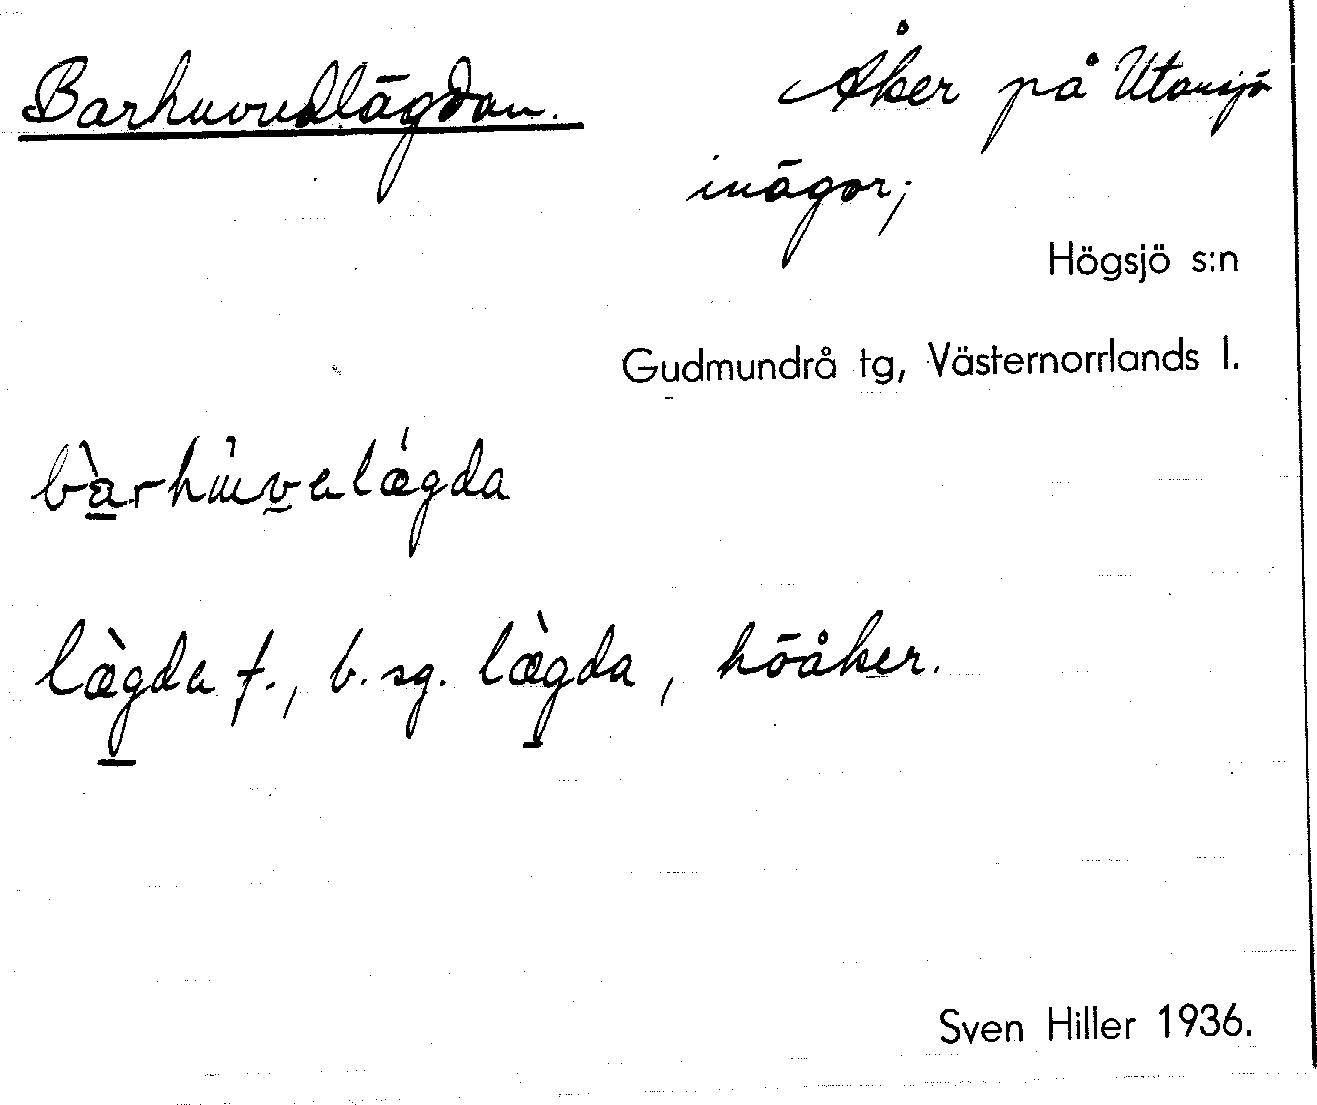 Barhuvudlägdan. Åker på Utansjö
inägor;
Högsjö s:n
Gudmundrå tg, Västernorrlands l.
bàrhúvelægda
lægda f., b. sg. lægda, höåker.
Sven Hiller 1936.